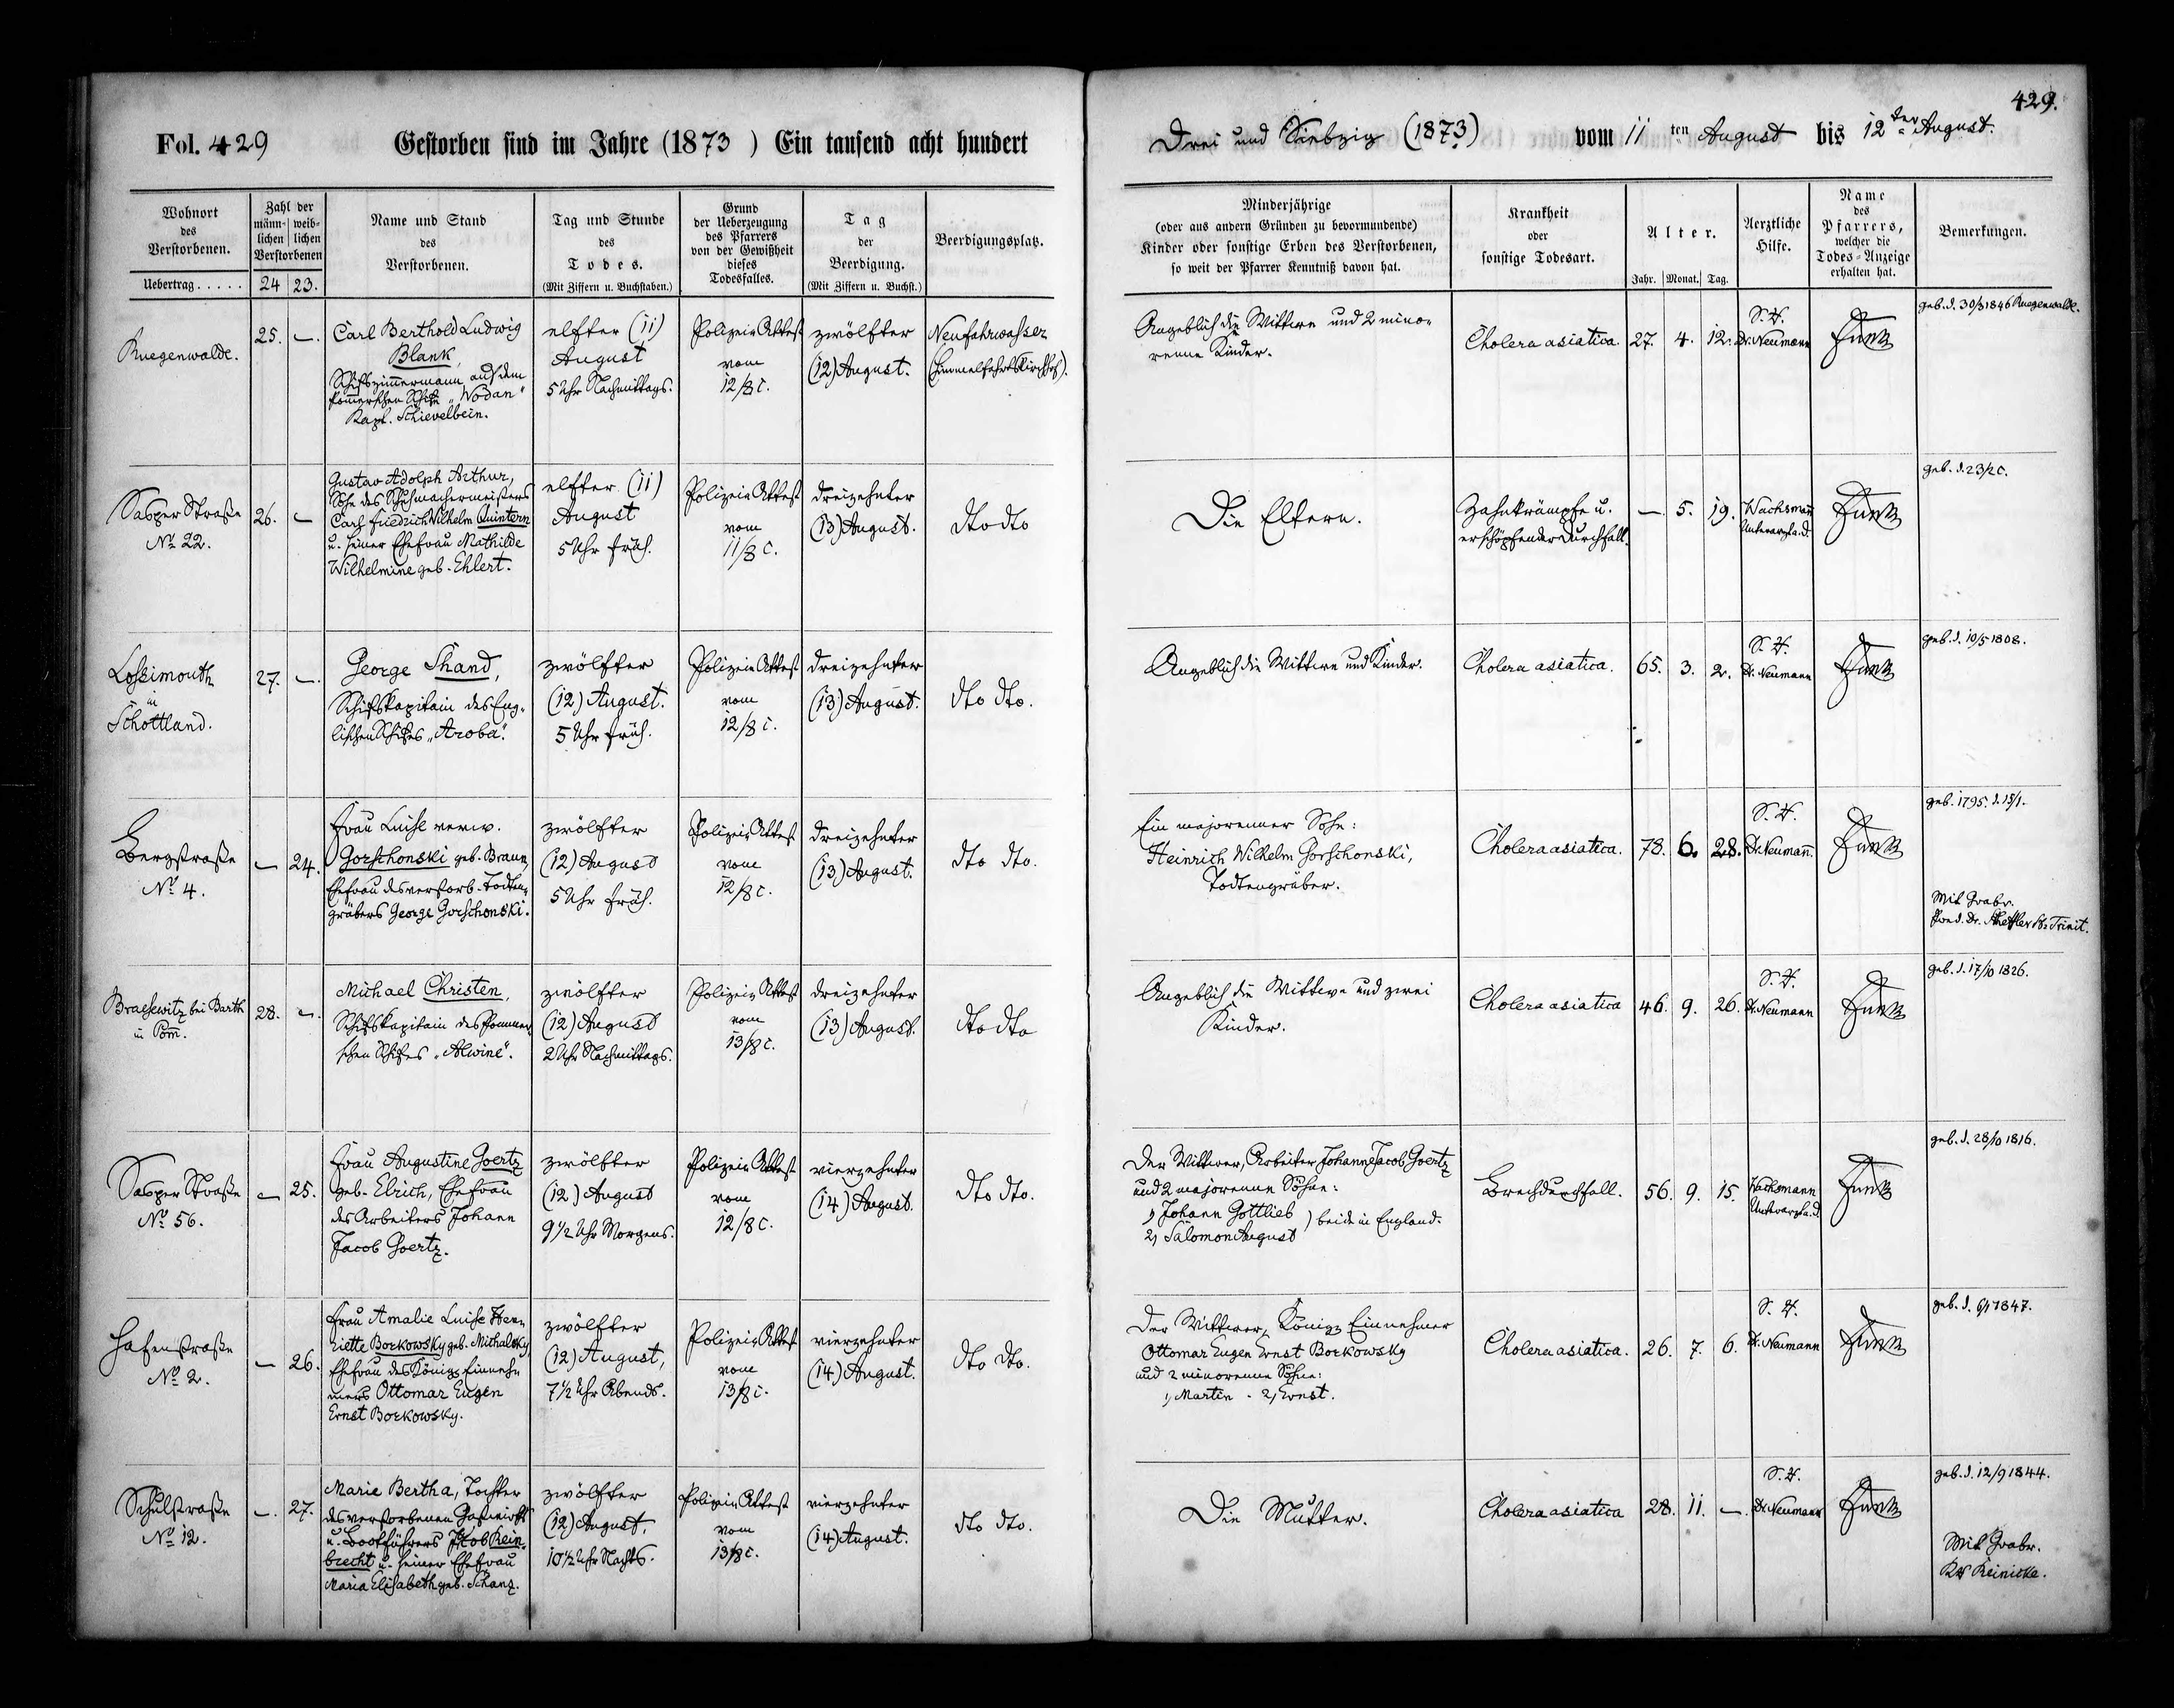 Fol. 429
Gestorben sind im Jahre (1873 ) Ein tausend acht hundert
Wohnort
des
Verstorbenen.
Zahl der
männ- weib-
lichen lichen
Verstorbenen
Name und Stand
des
Verstorbenen.
Tag und Stunde
des
Todes.
(Mit Ziffern u. Buchstaben.)
Grund
der Ueberzeugung
des Pfarrers
von der Gewißheit
dieses
Todesfalles.
Tag
der
Beerdigung.
(Mit Ziffern u. Buchst.)
Beerdigungsplatz.
Uebertrag . . . . . 24 23.
Ruegenwalde.
25. —.
Carl Berthold Ludwig
Blank,
Schiffszimmermann auf dem
Pommerschen Schiffe „Wodan"
Kapt. Schievelbein.
elfter (11)
August
5 Uhr Nachmittags.
Polizei Attest
vom
12/8 c.
zwölfter
(12) August.
Neufahrwasser
(Himmelfahrts Kirchhof).
Sasper Straße
No 22.
26. —
Gustav Adolph Arthur,
Sohn des Schuhmachermeisters
Carl Friedrich Wilhelm Quintern
u. seiner Ehefrau Mathilde
Wilhelmine geb. Ehlert.
elfter (11)
August
5 Uhr früh.
Polizei Attest
vom
11/8 c.
dreizehnter
(13) August.
dto dto
Lossimouth
in
Schottland.
27. —.
George Shand,
Schiffskapitain des Eng-
lischen Schiffes „Aroba".
zwölfter
(12) August.
5 Uhr früh.
Polizei Attest
vom
12/8 c.
dreizehnter
(13) August.
dto dto.
Bergstraße
No 4.
— 24.
Frau Luise verw.
Gorschonski geb. Braun,
Ehefrau des verstorb. Todten-
gräbers George Gorschonski.
zwölfter
(12) August
5 Uhr früh.
Polizei Attest
vom
12/8 c.
dreizehnter
(13) August.
dto dto.
bei Barth
in Pom̄.
28. —.
Michael Christen,
Schiffskapitain des Pommer-
schen Schiffes „Alwine".
zwölfter
(12) August
2 Uhr Nachmittags.
Polizei Attest
vom
13/8 c.
dreizehnter
(13) August.
dto dto
Sasper Straße
No 56.
— 25.
Frau Augustine Goertz
geb. Elrich, Ehefrau
des Arbeiters Johann
Jacob Goertz.
zwölfter
(12) August
9½ Uhr Morgens.
Polizei Attest
vom
12/8 c.
vierzehnter
(14) August.
dto dto.
Hafenstraße
No 2.
— 26.
Frau Amalie Luise Hen-
riette Borkowsky geb. Michalsky,
Ehefrau des Königs. Einneh-
mers Ottomar Eugen
Ernst Borkowsky.
zwölfter
(12) August,
7½ Uhr Abends.
Polizei Attest
vom
13/8 c.
vierzehnter
(14) August.
dto dto.
Schulstraße
No 12.
—. 27.
Marie Bertha, Tochter
des verstorbenen Gastwirths
u. Bootführers Jacob Rein-
brecht u. seiner Ehefrau
Maria Elisabeth geb. Schanz.
zwölfter
(12) August,
10½ Uhr Nachts.
Polizei Attest
vom
13/8 c.
vierzehnter
(14) August.
dto dto.
429.
Drei und Siebzig (1873) vom 11 ten August bis 12 ter August.
Minderjährige
(oder aus andern Gründen zu bevormundende)
Kinder oder sonstige Erben des Verstorbenen,
so weit der Pfarrer Kenntniß davon hat.
Krankheit
oder
sonstige Todesart.
Alter.
Jahr. Monat. Tag.
Aerztliche
Hilfe.
Name
des
Pfarrers,
welcher die
Todes-Anzeige
erhalten hat.
Bemerkungen.
Angeblich die Wittwe und 2 mino-
renne Kinder.
Cholera asiatica.
27. 4. 12.
Dr. Neumann
geb. d. 30/3 1846 Ruegenwalde.
Die Eltern.
Zahnkrämpfe u.
erschöpfender Durchfall.
—. 5. 19.
Wachsmann
Unterarzt a. D.
geb. d. 23/2 c.
Angeblich die Wittwe und Kinder.
Cholera asiatica.
65. 3. 2.
Dr. Neumann
geb. d. 10/5 1808.
Ein majorenner Sohn:
Heinrich Wilhelm Gorschonski,
Todtengräber.
Cholera asiatica.
78. 6. 28.
Dr. Neumann.
geb. 1795. d. 15/1.
Mit Grabr.
Angeblich die Wittwe und zwei
Kinder.
Cholera asiatica
46. 9. 26.
Dr. Neumann
geb. d. 17/10 1826.
Der Wittwer, Arbeiter Johann Jacob Goertz
und 2 majorenne Söhne:
1, Johann Gottlieb
2, Salomon August ) beide in England.
Brechdurchfall.
56. 9. 15.
Wachsmann
Unterarzt a. D.
geb. d. 28/10 1816.
Der Wittwer, Königs. Einnehmer
Ottomar Eugen Ernst Borkowsky
und 2 minorenne Söhne:
1, Martin - 2, Ernst.
Cholera asiatica.
26. 7. 6.
Dr. Neumann
geb. d. 6/1 1847.
Die Mutter.
Cholera asiatica
28. 11. —.
Dr. Neumann
geb. d. 12/9 1844.
Mit Grabr.
Reinicke.